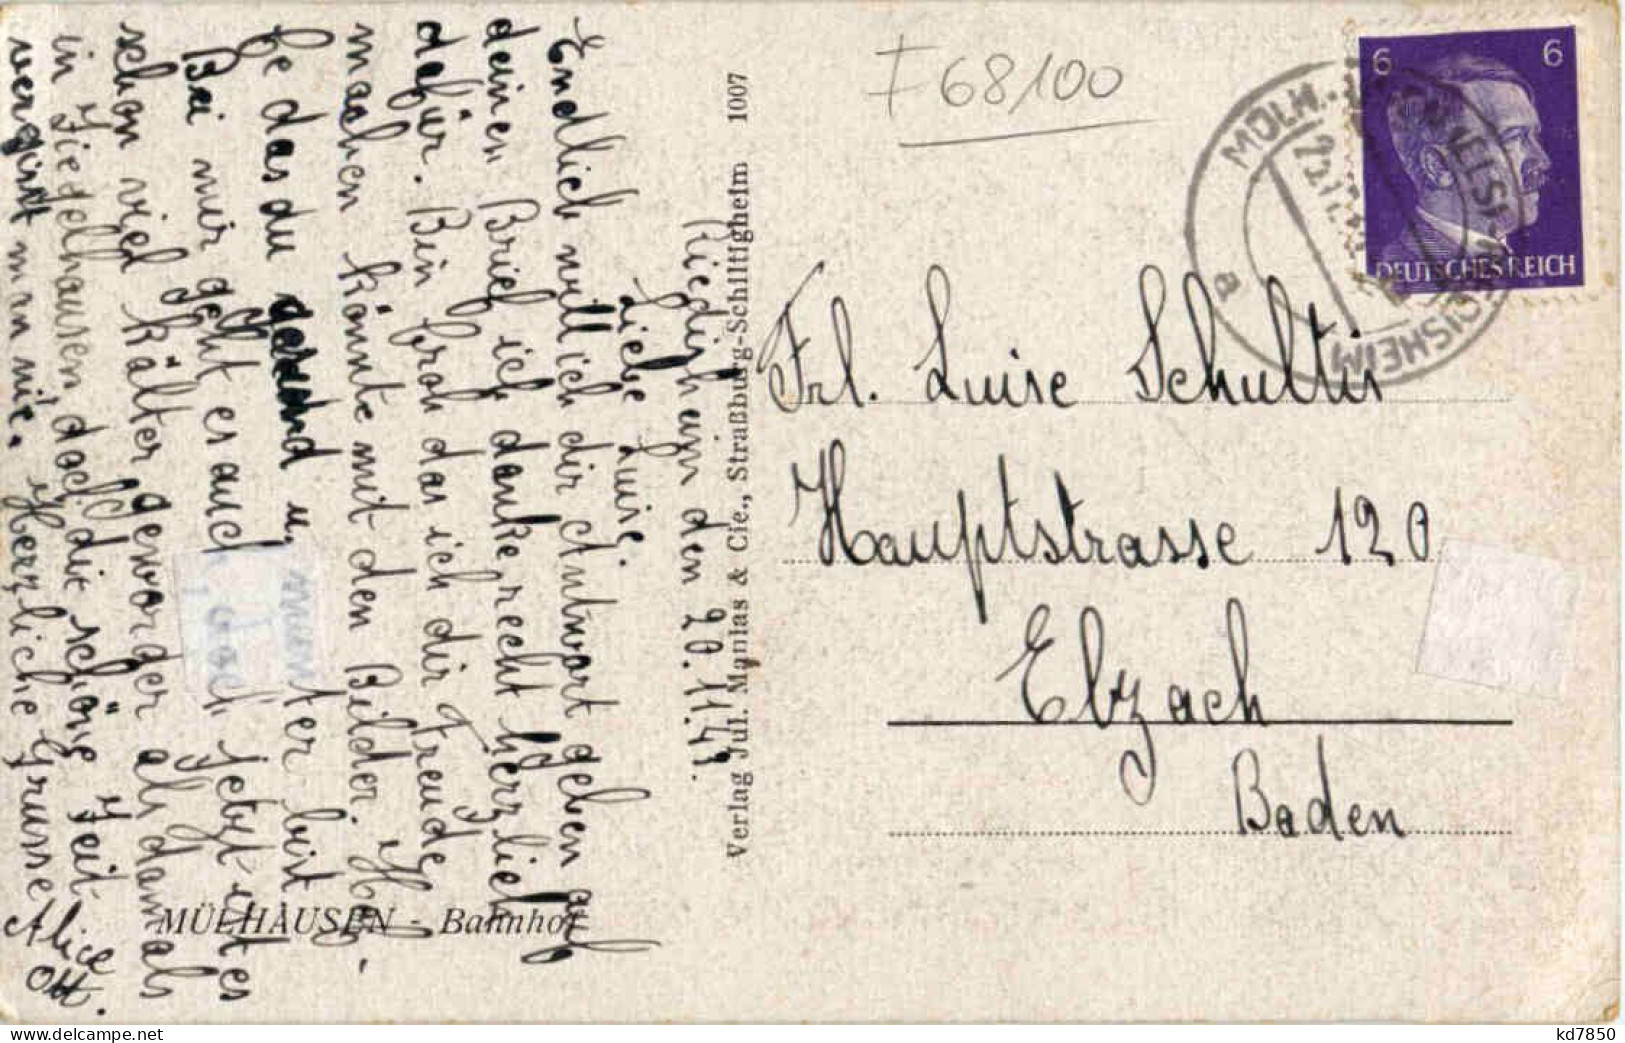 Riedisheim den 20.11.43.
Liebe Luise.
Endlich will ich dir Antwort geben auf
deinen Brief ich danke, recht herzlich
dafür. Bin froh das ich dir Freude
machen könnte mit den Bilder. Ho,
fe das du gesund u. munter bist
Bei mir geht es auch, doch jetzt ist es
schon viel kälter geworder als damals
in Fiefelhausen, doch dit schöne Zeit
vergisst man nie. Herzliche Grüsse
Alice
Ott.
MÜLHAUSEN - Bahnhof
Verlag Jul. Manias & Cie., Straßburg-Schiltigheim 1007
F 68100
6 6
DEUTSCHES REICH
MÜLH. (ELS)-RIEDISHEIM
a
Frl. Luise Schultis
Hauptstrasse 120
Elzach
Baden
kd7850